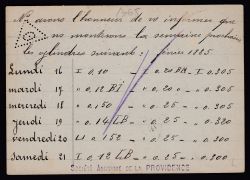 Nous avons l'honneur de vs informer que
ns monterons la semaine prochaine
les cylindres suivants : / février 1885
Lundi 16 I 0.10 - I 0.20 BB - I 0.305
mardi 17 " 0.12 BI - " 0.20 - " 0.300
mercredi 18 " 0.150 - " 0.25 - " 0.305
jeudi 19 " 0.14 LB - " 0.25 - " 0.320
vendredi 20 " 0.152 - " 0.25 - " 0.300
Samedi 21 I 0.12 LB - I 0.25 - I 0.305
SOCIÉTÉ ANONYME DE LA PROVIDENCE